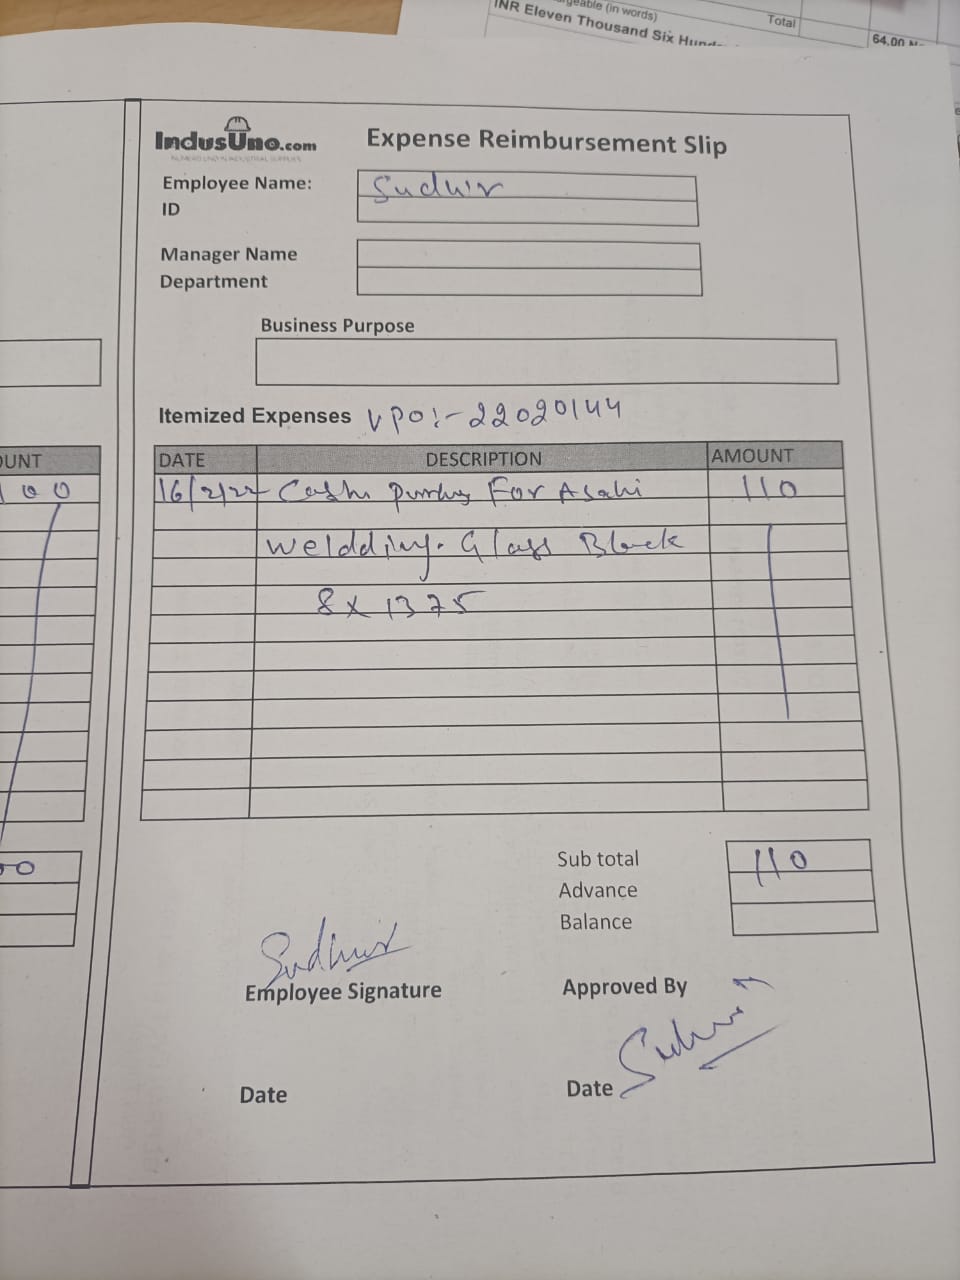 geable (in words)
INR Eleven Thousand Six
Total
64.00
IndusUno.com
Expense Reimbursement Slip
Employee Name:
Sudhir
ID
Manager Name
Department
Business Purpose
Itemized Expenses VPO:- 22020144
OUNT
DATE DESCRIPTION AMOUNT
100
16/2/22 Cash For Asahi 110
Weldding. Glass Black
8 x 1375
00
Sub total 110
Advance
Balance
Sudhir
Employee Signature
Approved By
Sudhir
Date
Date